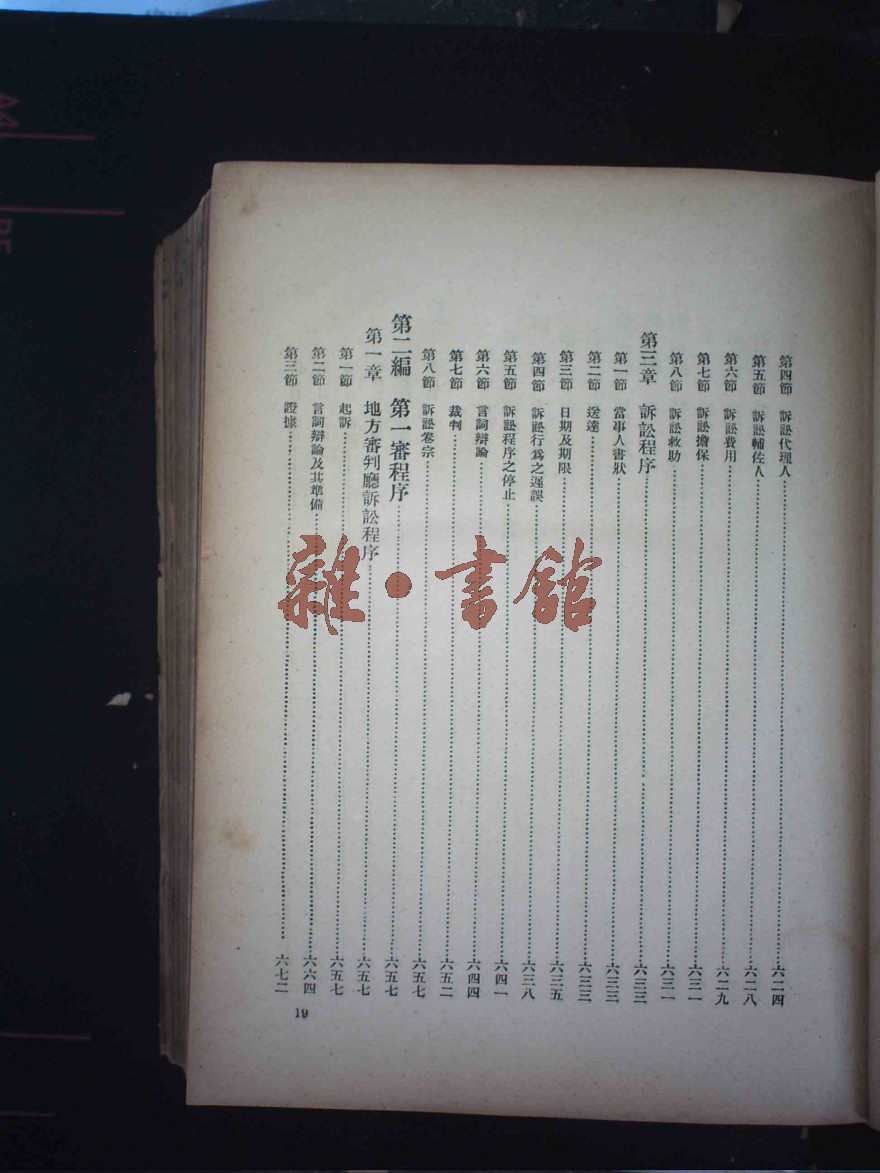 第四節　訴訟代理人……六二四
第五節　訴訟輔佐人……六二八
第六節　訴訟費用……六二九
第七節　訴訟擔保……六三一
第八節　訴訟救助……六三一
第三章　訴訟程序……六三三
第一節　當事人書狀……六三三
第二節　送達……六三三
第三節　日期及期限……六三五
第四節　訴訟行爲之遲誤……六三八
第五節　訴訟程序之停止……六四一
第六節　言詞辯論……六四四
第七節　裁判……六五二
第八節　訴訟卷宗……六五七
第二編　第一審程序……六五七
第一章　地方審判廳訴訟程序……六五七
第一節　起訴……六五七
第二節　言詞辯論及其準備……六六四
第三節　證據……六七二
19
雜·書館
A4